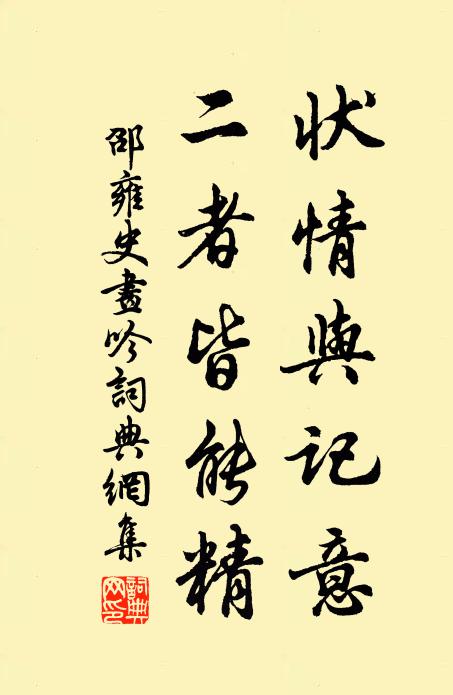 狀情與記意
二者皆能精
邵雍史畫吟詞典網集
詞典網印